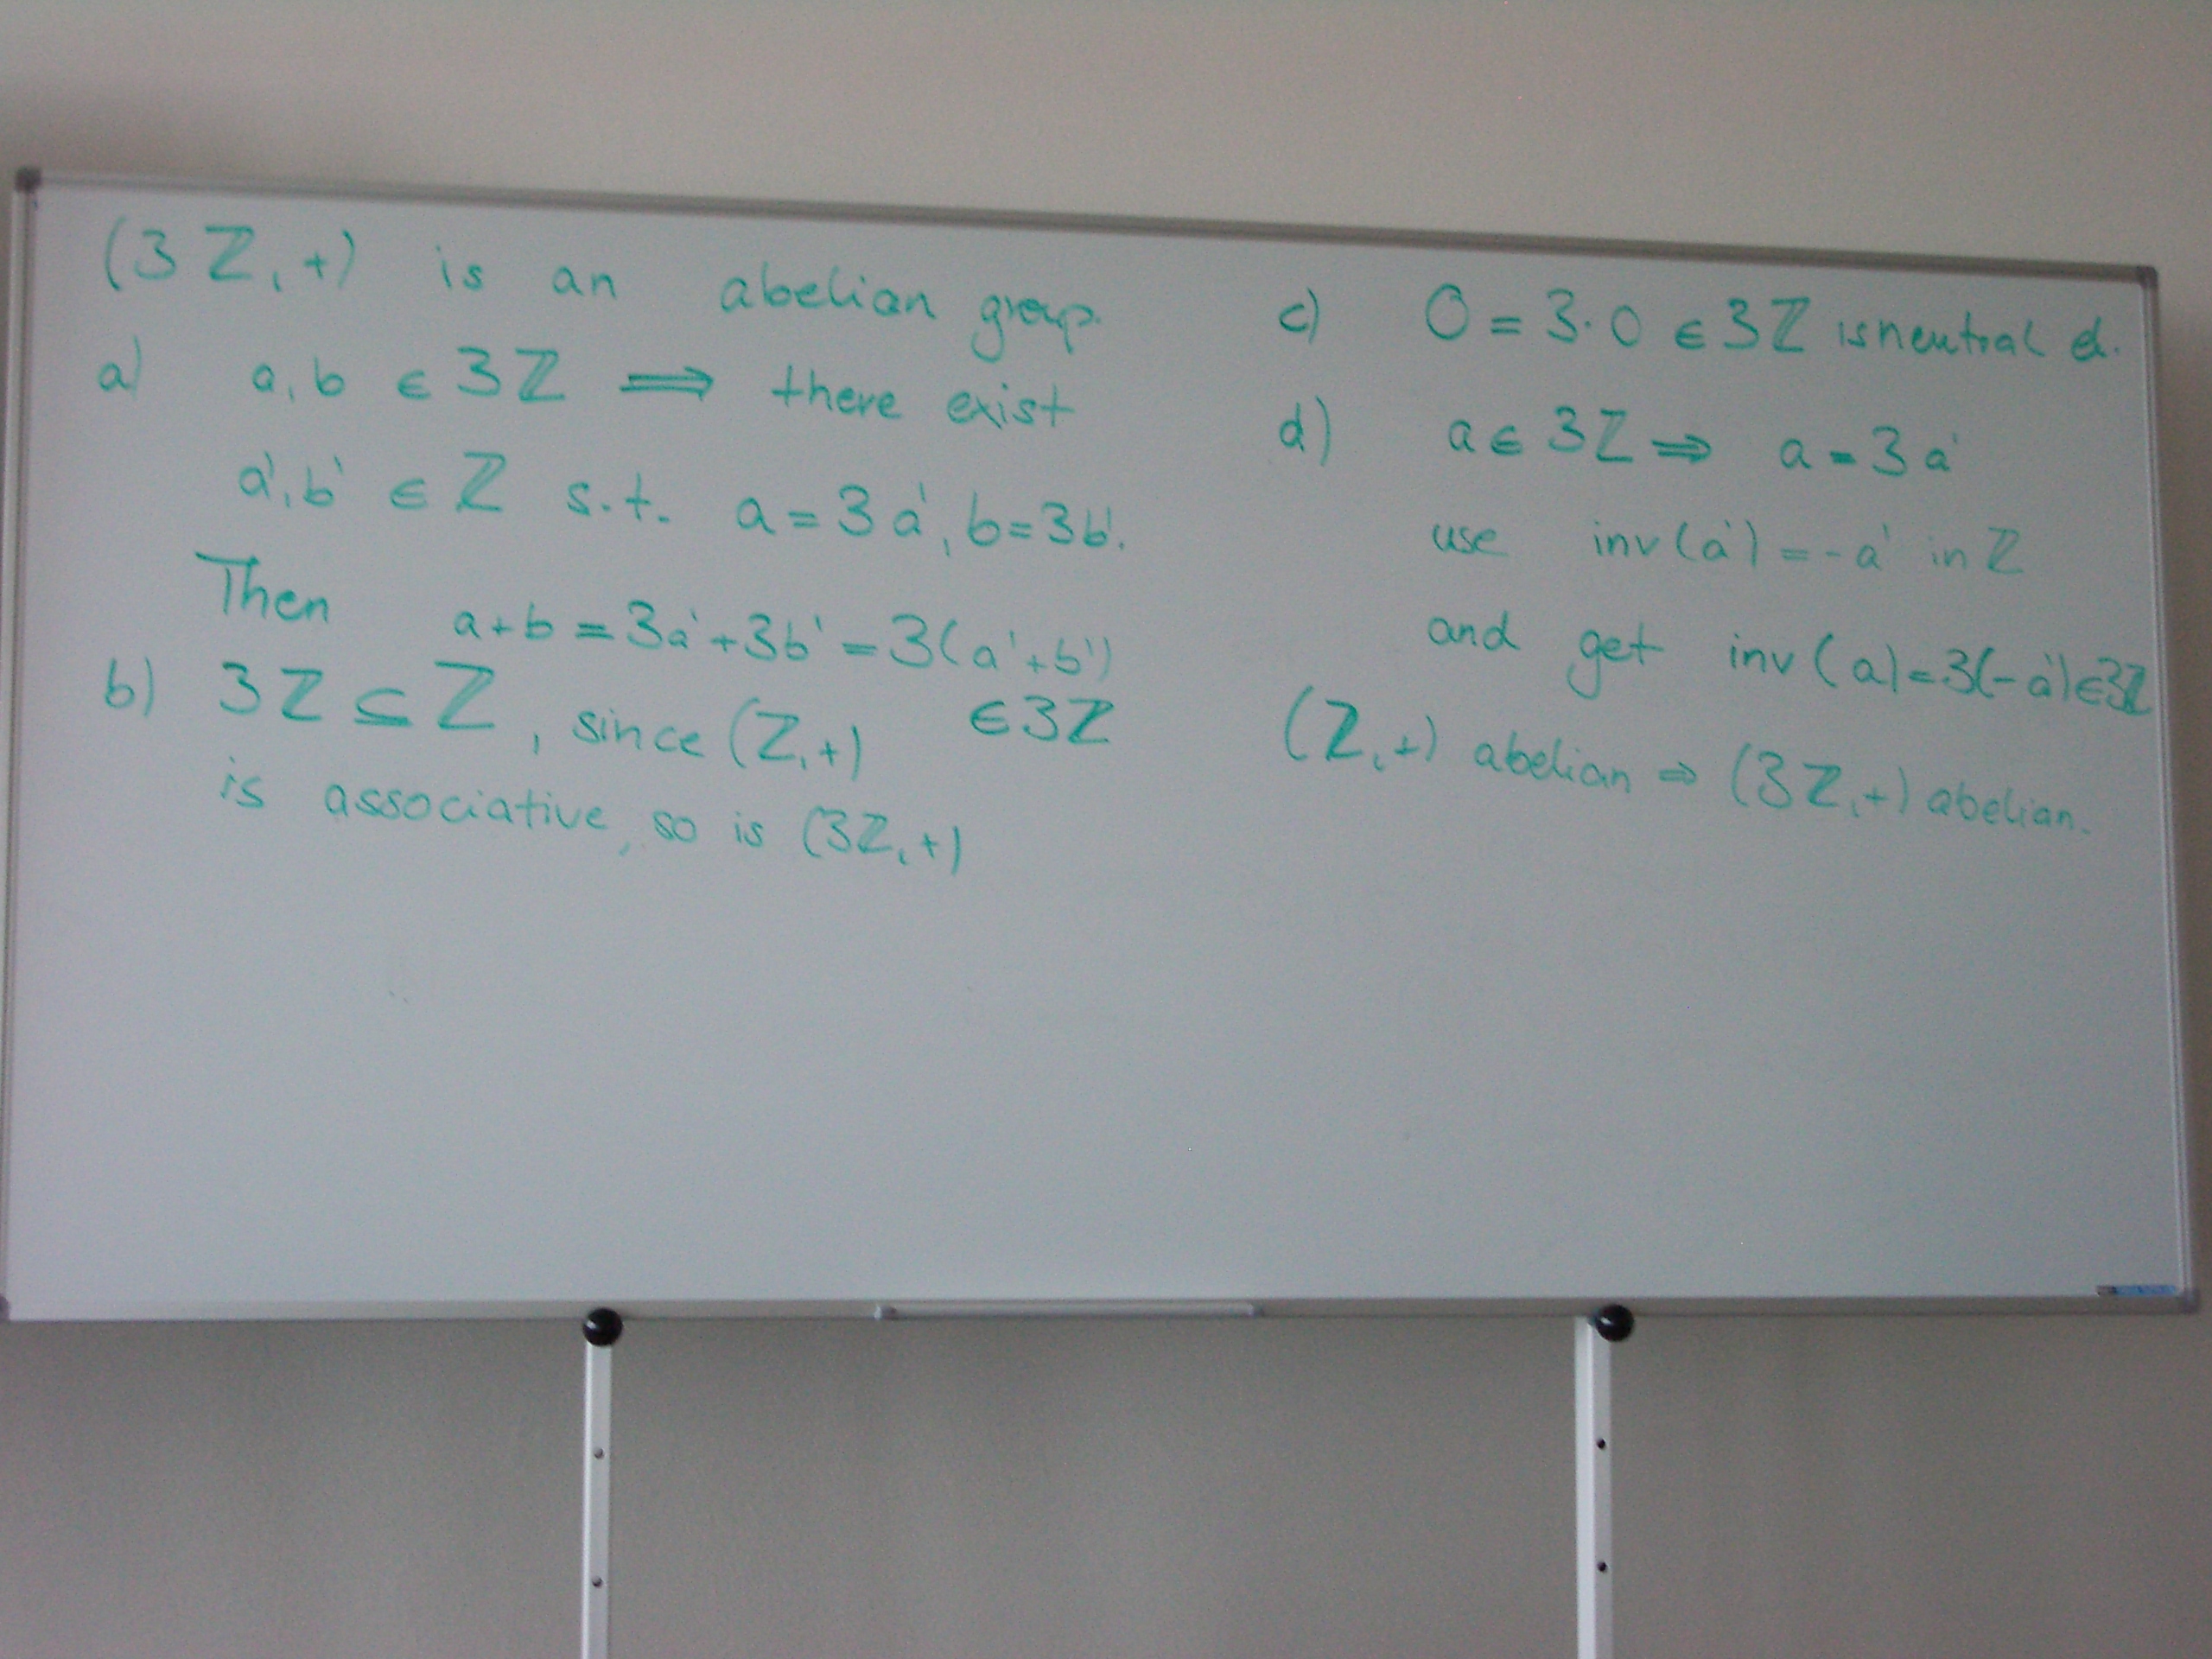 (3ℤ, +) is an abelian group.
a) a, b ∈ 3ℤ ⟹ there exist
a', b' ∈ ℤ s.t. a = 3a', b = 3b'.
Then a+b = 3a'+3b' = 3(a'+b')
∈ 3ℤ
b) 3ℤ ⊆ ℤ, since (ℤ, +)
is associative, so is (3ℤ, +)
c) 0 = 3·0 ∈ 3ℤ is neutral el.
d) a ∈ 3ℤ ⟹ a = 3a'
use inv(a') = -a' in ℤ
and get inv(a) = 3(-a') ∈ 3ℤ
(ℤ, +) abelian ⇒ (3ℤ, +) abelian.